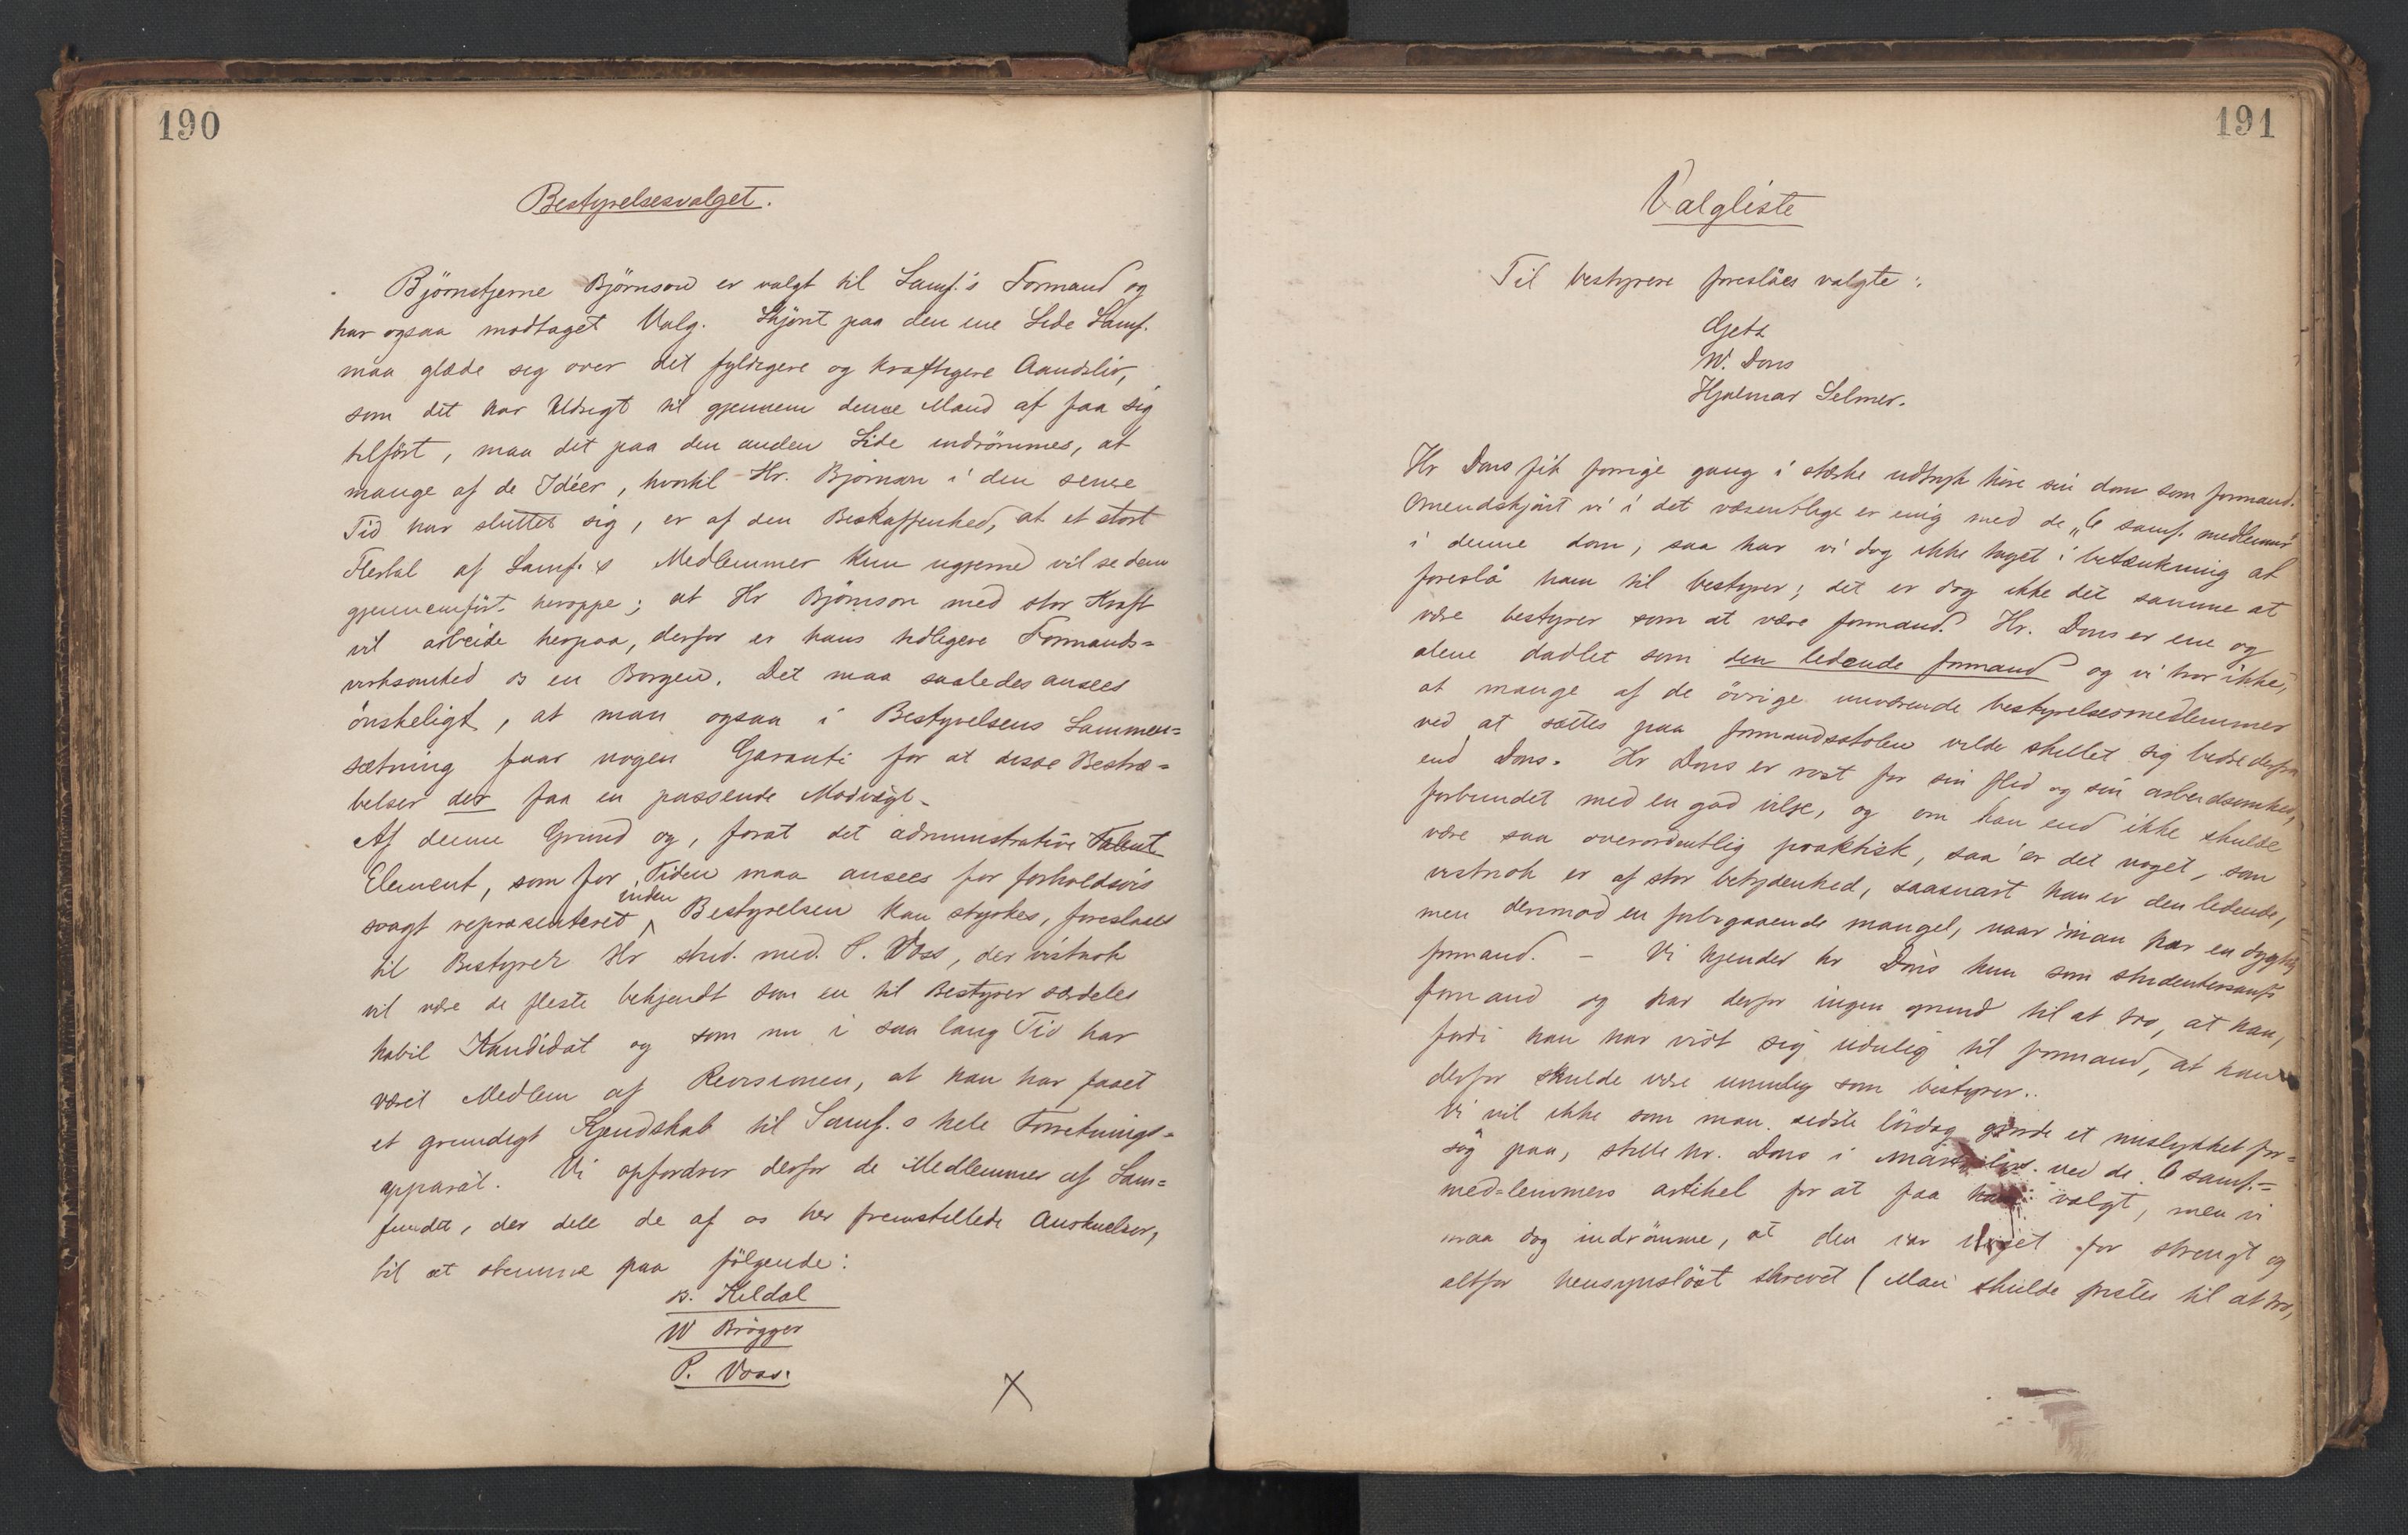 190
Bestyrelsesvalget.
Bjørnstjerne Bjørnson er valgt til Samf.'s Formand og
har ogsaa modtaget Valg. Skjønt paa den ene Side Samf.
maa glæde sig over det fyldigere og kraftigere Aandsliv,
som det har Udsigt til gjennem denne Mand at faa sig
tilført, maa det paa den anden Side indrømmes, at
mange af de Idéer, hvortil Hr. Bjørnson i den senere
Tid har sluttet sig, er af den Beskaffenhed, at et stort
Flertal af Samf.s Medlemmer kun ugjerne vil se dem
gjennemført heroppe; at Hr Bjørnson med stor Kraft
vil arbeide herpaa, derfor er hans tidligere Formands=
virksomhed os en Borgen. Det maa saaledes ansees
ønskeligt, at man ogsaa i Bestyrelsens Sammen=
sætning faar nogen Garanti for at disse Bestræ=
belser der faa en passende Modvægt.
Af denne Grund og, forat det administrative Talent
Element, som for Tiden maa ansees for forholdsvis
svagt repræsenteret inden Bestyrelsen kan styrkes, foreslaaes
til Bestyrer Hr stud. med. P. Voss, der vistnok
vil være de fleste bekjendt som en til Bestyrer særdeles
habil Kandidat og som nu i saa lang Tid har
været Medlem af Revisionen, at han har faaet
et grundigt Kjendskab til Samf.s hele Forretnings=
apparat. Vi opfordrer derfor de Medlemmer af Sam=
fundet, der dele de af os her fremstillede Anskuelser,
til at stemme paa følgende:
B. Kildal
W Brøgger
P. Voss.
X
191
Valgliste
Til bestyrere foreslåes valgte:
Getz
W. Dons
Hjalmar Selmer.
Hr Dons fik forrige gang i stærke udtryk høre sin dom som formand.
Omendskjønt vi i det væsentlige er enig med de „6 samf. medlemmer"
i denne dom, saa har vi dog ikke taget i betænkning at
foreslå ham til bestyrer; det er dog ikke det samme at
være bestyrer som at være formand. Hr. Dons er ene og
alene dadlet som den ledende formand og vi tror ikke,
at mange af de øvrige nuværende bestyrelsesmedlemmer
ved at sættes paa formandsstolen vilde skillet sig bedre derfra
end Dons. Hr Dons er rost for sin flid og sin arbeidsomhed,
forbundet med en god vilje, og om han end ikke skulde
være saa overordentlig praktisk, saa er det noget, som
vistnok er af stor betydenhed, saasnart han er den ledende,
men derimod en forbigaaende mangel, naar man har en dygtig
formand. — Vi kjender hr Dons kun som studentersamf.
formand og har derfor ingen grund til at tro, at han,
fordi han har vist sig udulig til formand, at han
derfor skulde være umulig som bestyrer..
Vi vil ikke som man sidste lørdag gjorde et mislykket for=
søg paa, stille hr. Dons i ved de 6 samf.=
med=lemmers artikel for at faa valgt, men vi
maa dog indrømme, at den var meget for strengt og
altfor hensynsløst skrevet (Man skulde fristes til at tro,